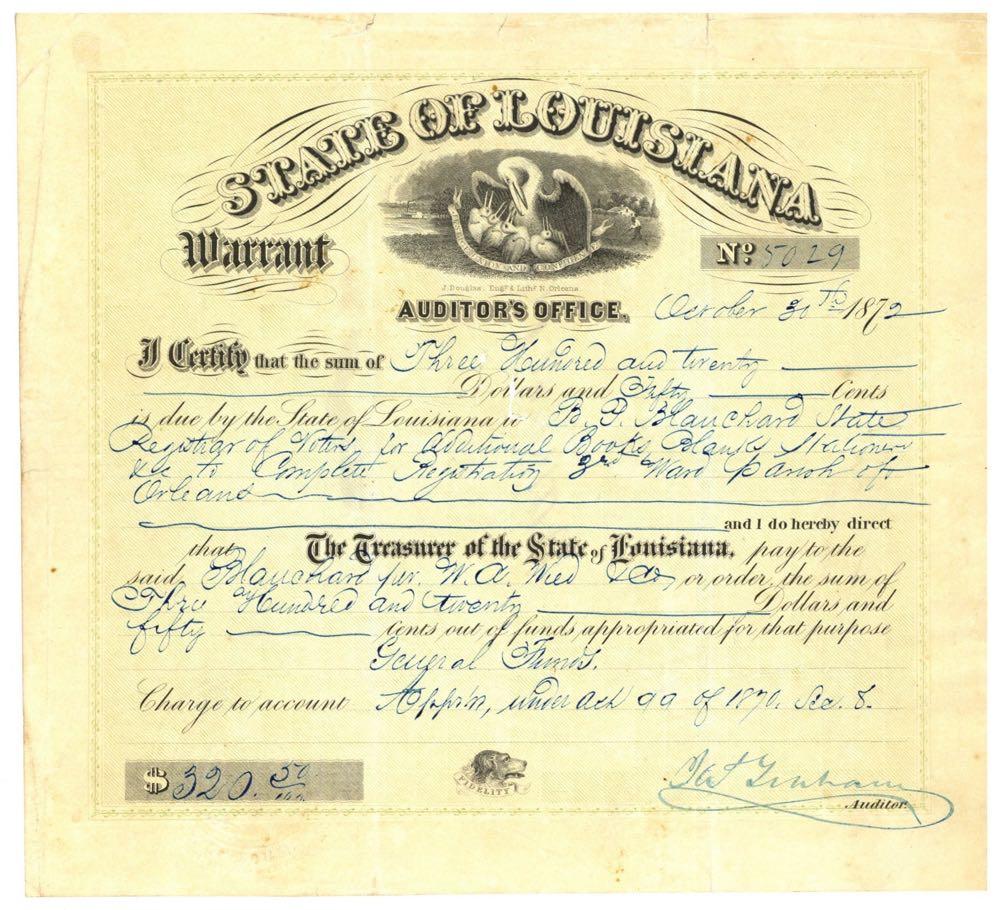 STATE OF LOUISIANA
Warrant
No. 5029
UNION AND CONFIDENCE
J. Douglas. Engr. & Lithr. N. Orleans
AUDITOR'S OFFICE.
October 30th 1872
I Certify that the sum of Three Hundred and twenty
Dollars and Fifty Cents
is due by the State of Louisiana to B. P. Blanchard State
Registrar of Voters for additional Books, Blanks Stationery
&c to Complete Registration 3rd Ward Parish of
Orleans
and I do hereby direct
that The Treasurer of the State of Louisiana, pay to the
said Blanchard per. W. A. &Co, or order, the sum of
Three Hundred and twenty Dollars and
fifty cents out of funds appropriated for that purpose
General Funds.
Charge to account App'n, under act 99 of 1870. Sec. 8.
$320.50/100
FIDELITY
Graham
Auditor.